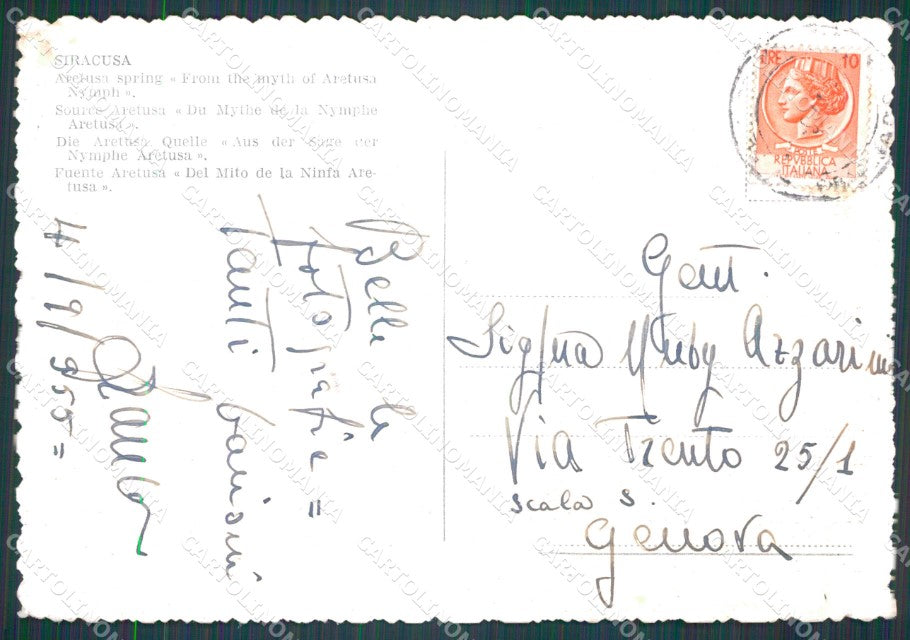 SIRACUSA
Aretusa spring « From the myth of Aretusa
Nymph ».
Source Aretusa « Du Mythe de la Nymphe
Aretusa ».
Die Aretusa Quelle « Aus der Sage der
Nymphe Aretusa ».
Fuente Aretusa « Del Mito de la Ninfa Are-
tusa ».
LIRE 10
POSTE
REPVBBLICA
ITALIANA
Belle le
fotografie =
tanti
4/9/955=
Gent.
Sig/na Azzarini
Via Trento 25/1
scala s.
Genova
CARTOLINOMANIA